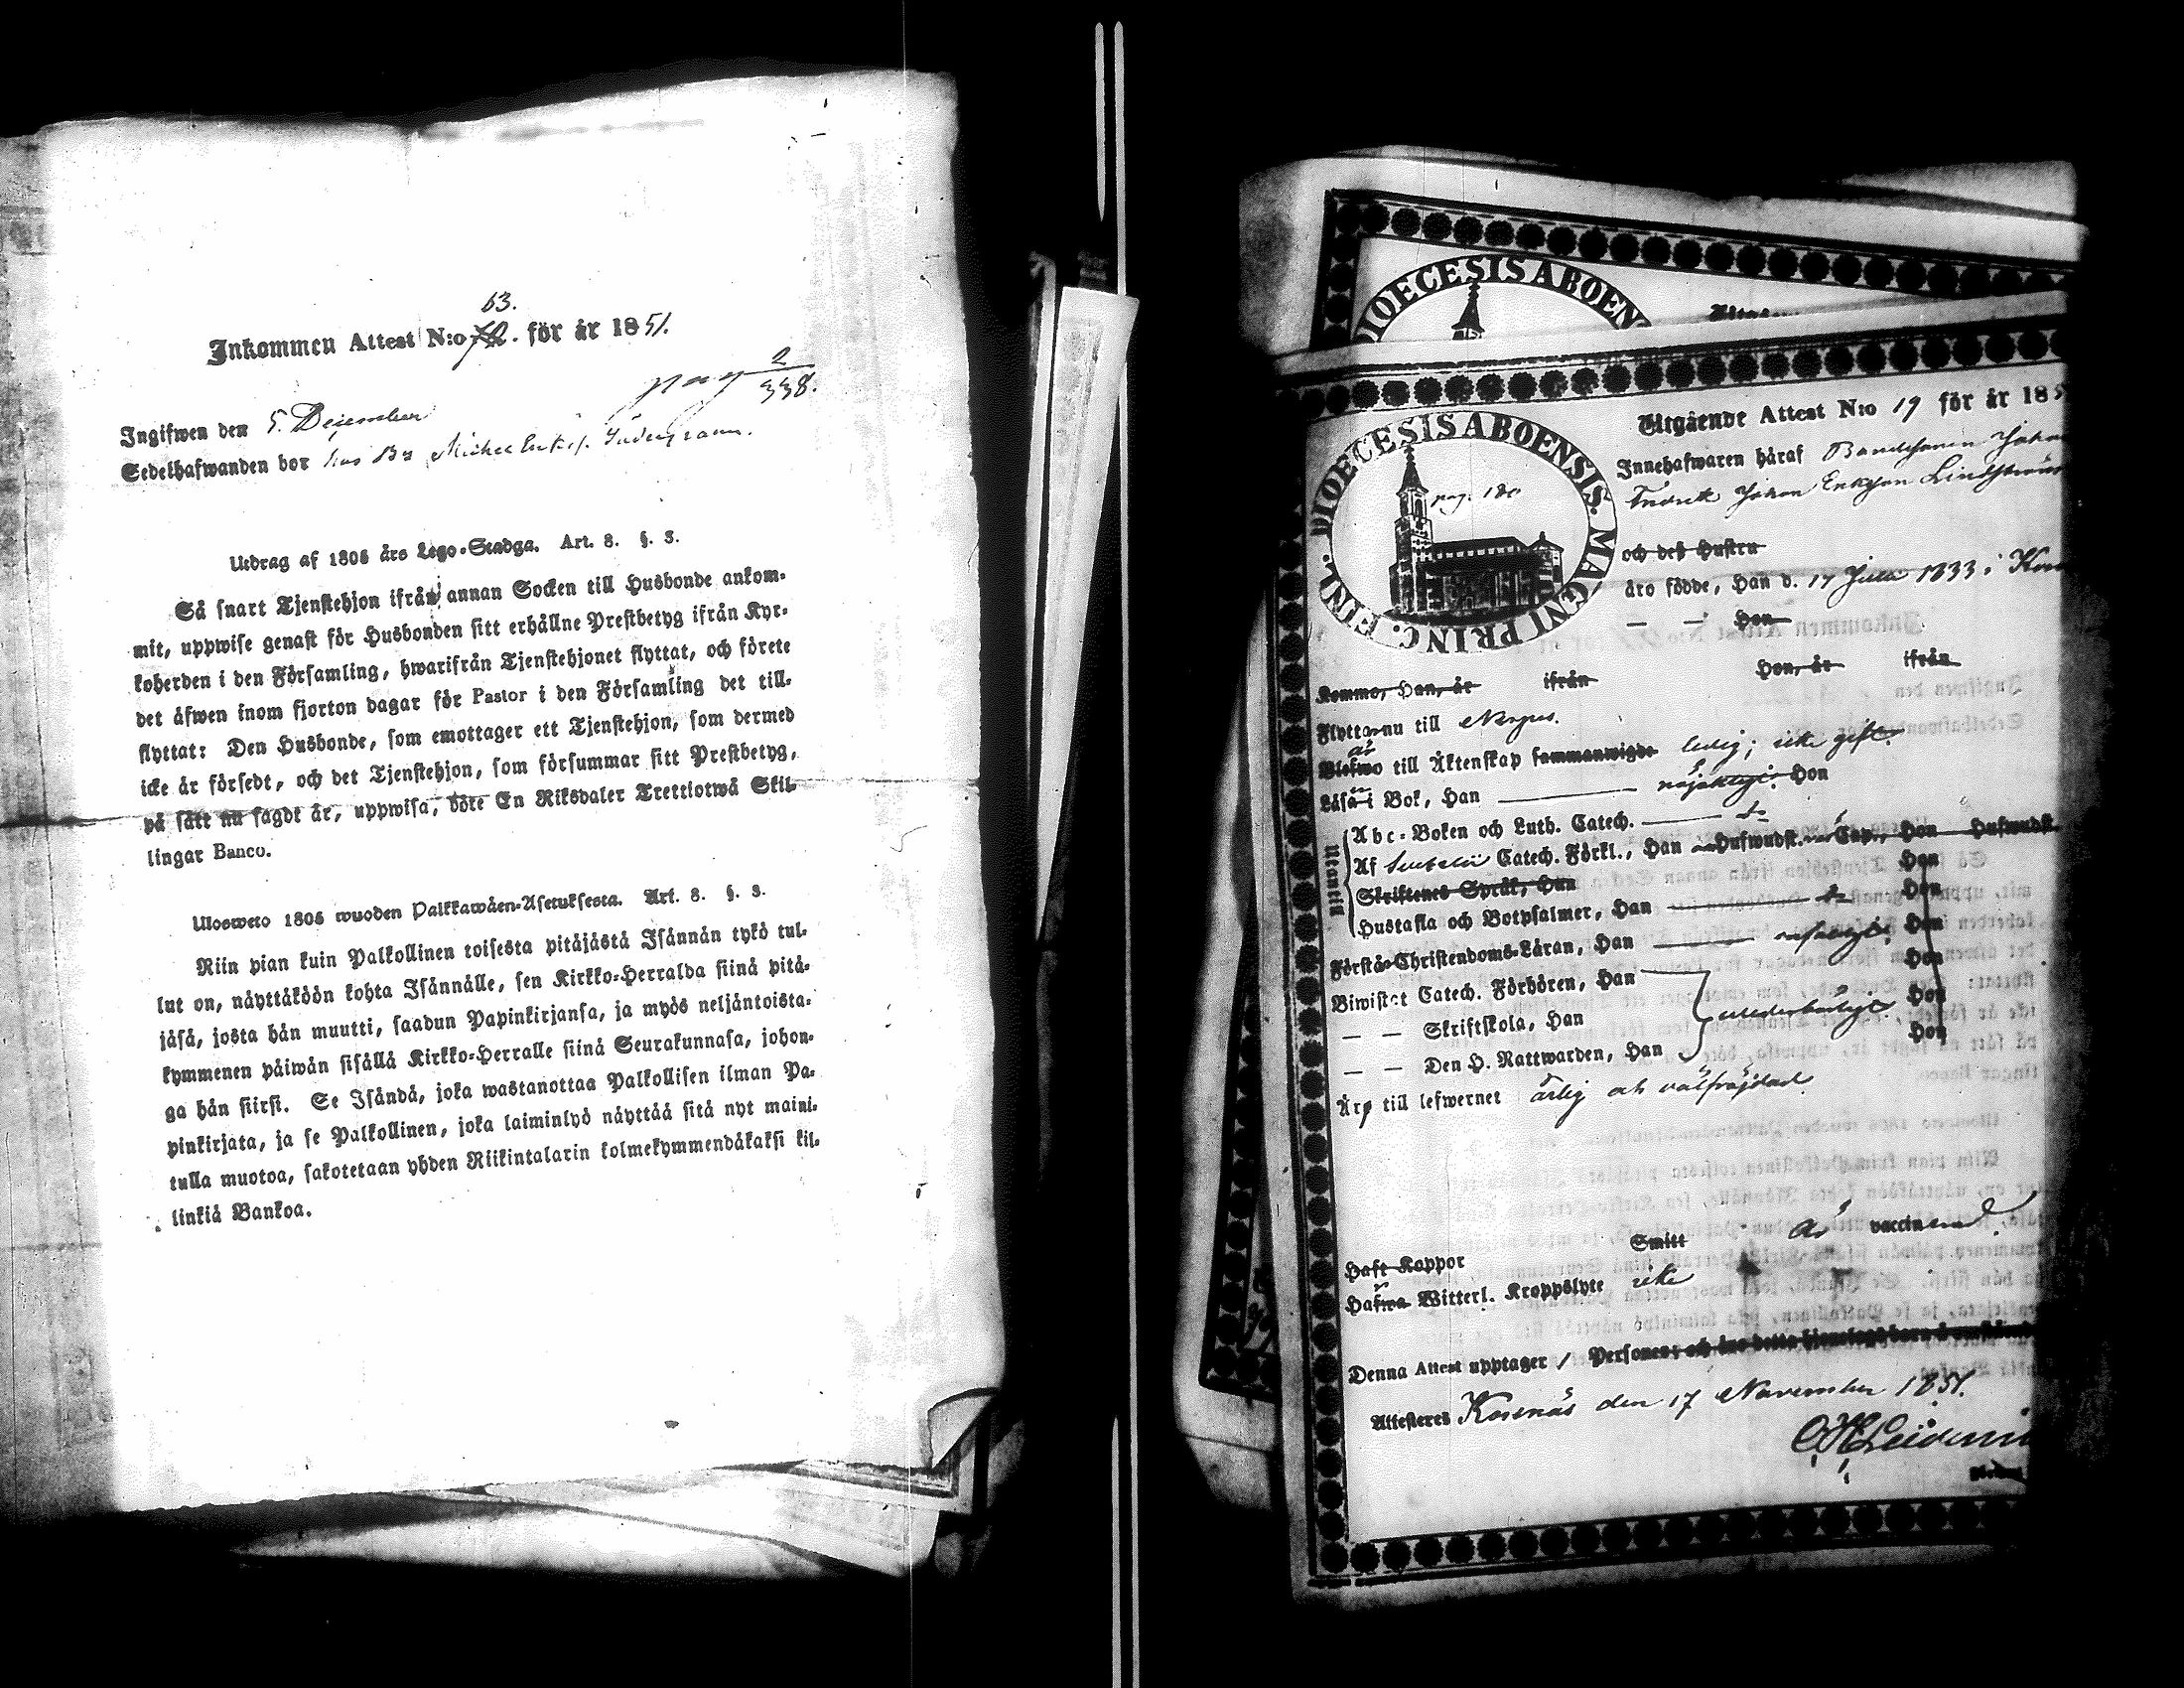 63.
Inkommen Attest N:o 72. för år 1851.
pag 2
338.
Ingifwen den 5. December
Sedelhafwanden bor hos Bn Michel
Utdrag af 1805 års Lego-Stadga. Art. 8. §. 3.
Så snart Tjenstehjon ifrån annan Socken till Husbonde ankom-
mit, uppwise genast för Husbonden sitt erhållne Prestbetyg ifrån Kyr-
koherden i den Församling, hwarifrån Tjenstehjonet flyttat, och förete
det äfwen inom fjorton dagar för Pastor i den Församling det till-
flyttat: Den Husbonde, som emottager ett Tjenstehjon, som dermed
icke är försedt, och det Tjenstehjon, som försummar sitt Prestbetyg,
på sätt nu sagdt är, uppwisa, böte En Riksdaler Trettiotwå Skil-
lingar Banco.
Ulosweto 1805 wuoden Palkkawäen-Asetuksesta. Art. 8. §. 3.
Niin pian kuin Palkollinen toisesta pitäjästä Isännän tykö tul-
lut on, näyttäköön kohta Isännälle, sen Kirkko-Herralda siinä pitä-
jäsä, josta hän muutti, saadun Papinkirjansa, ja myös neljäntoista-
kymmenen päiwän sisällä Kirkko-Herralle siinä Seurakunnasa, johon-
ga hän siirsi. Se Isändä, joka wastanottaa Palkollisen ilman Pa-
pinkirjata, ja se Palkollinen, joka laiminlyö näyttää sitä nyt maini-
tulla muotoa, sakotetaan yhden Riikintalarin kolmekymmendäkaksi kil-
linkiä Bankoa.
DIOECESIS ABOEN
DIOECESIS ABOENSIS. MAGNI PRINC. FINL.
pag. 180
Utgående Attest N:o 19 för år 185
Innehafwaren häraf Bondesonen Johan
Fredrik Johan Ericsson Lindström
och deß Hustru
äro födde, Han d. 17 Julii 1833 i Kors
— — Hon
Kommo, Han, år ifrån Hon, år ifrån
Flytta nu till Nerpes.
är
Blefwo till Äktenskap sammanwigde ledig; icke gift.
Läsa i Bok, Han — nöjaktigt. Hon
Utantill
Abc-Boken och Luth. Catech. — d:o
Af Svebelii Catech. Förkl., Han Hufwudst. Cap., Hon Hufwudst.
Skriftenes Språk, Han Hon
Hustafla och Botpsalmer, Han — d:o Hon
Förstå Christendoms-Läran, Han — Hon
Biwistat Catech. Förhören, Han Hon
— — Skriftskola, Han Hon
— — Den H. Nattwarden, Han Hon
Är till lefwernet ärlig och välfräjdad
Haft Koppor Smitt är vaccinerad
Hafwa Witterl. Kroppslyte icke
Denna Attest upptager 1 Person
Attesteras Korsnäs den 17 November 1851.